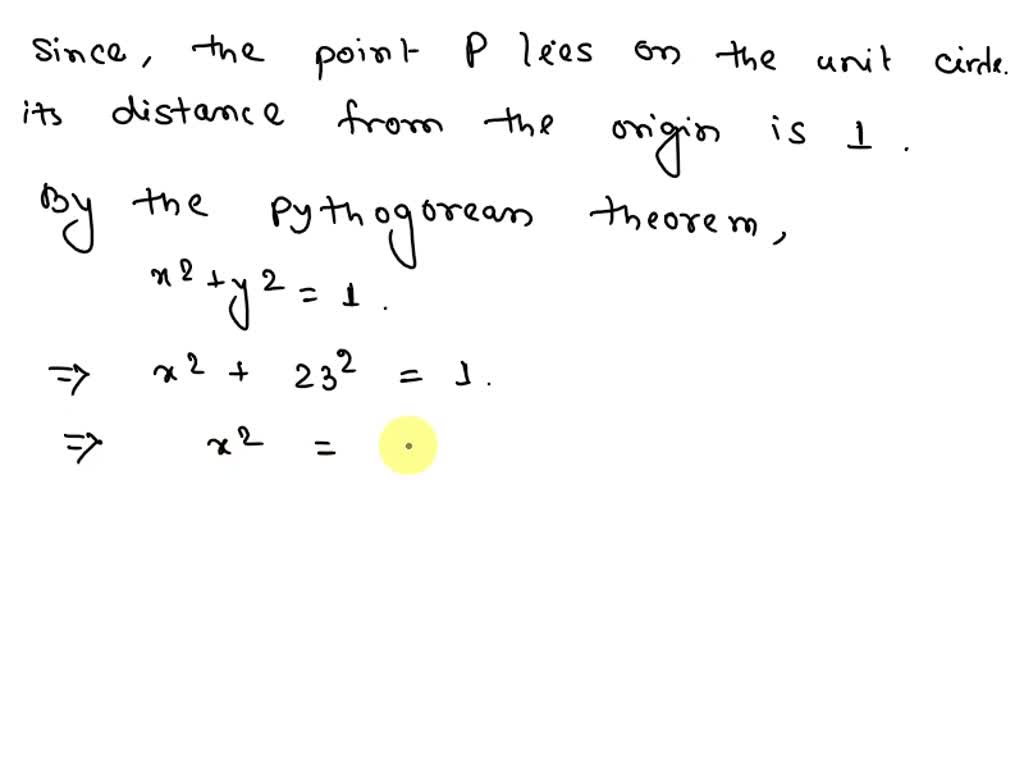 Since, the point P lies on the unit circle.
its distance from the origin is 1.
By the pythogorean theorem,
x² + y² = 1.
⇒ x² + 23² = 1.
⇒ x² =